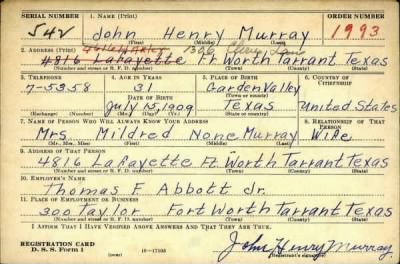 SERIAL NUMBER 1. NAME (Print) ORDER NUMBER
542 John Henry Murray 1993
(First) (Middle) (Last)
2. ADDRESS (Print) 1326
4816 Lafayette Ft Worth Tarrant Texas
(Number and street or R. F. D. number) (Town) (County) (State)
3. TELEPHONE 4. AGE IN YEARS 5. PLACE OF BIRTH 6. COUNTRY OF CITIZENSHIP
7-5358 31 Garden Valley
DATE OF BIRTH (Town or county)
July 15, 1909 Texas United States
(Exchange) (Number) (Mo.) (Day) (Yr.) (State or country)
7. NAME OF PERSON WHO WILL ALWAYS KNOW YOUR ADDRESS 8. RELATIONSHIP OF THAT PERSON
Mrs. Mildred None Murray Wife
(Mr., Mrs., Miss) (First) (Middle) (Last)
9. ADDRESS OF THAT PERSON
4816 Lafayette Ft. Worth Tarrant Texas
(Number and street or R. F. D. number) (Town) (County) (State)
10. EMPLOYER'S NAME
Thomas F. Abbott Jr.
11. PLACE OF EMPLOYMENT OR BUSINESS
300 Taylor Fort Worth Tarrant Texas
(Number and street or R. F. D. number) (Town) (County) (State)
I AFFIRM THAT I HAVE VERIFIED ABOVE ANSWERS AND THAT THEY ARE TRUE.
REGISTRATION CARD
D. S. S. Form 1 John Henry Murray
(Registrant's signature)